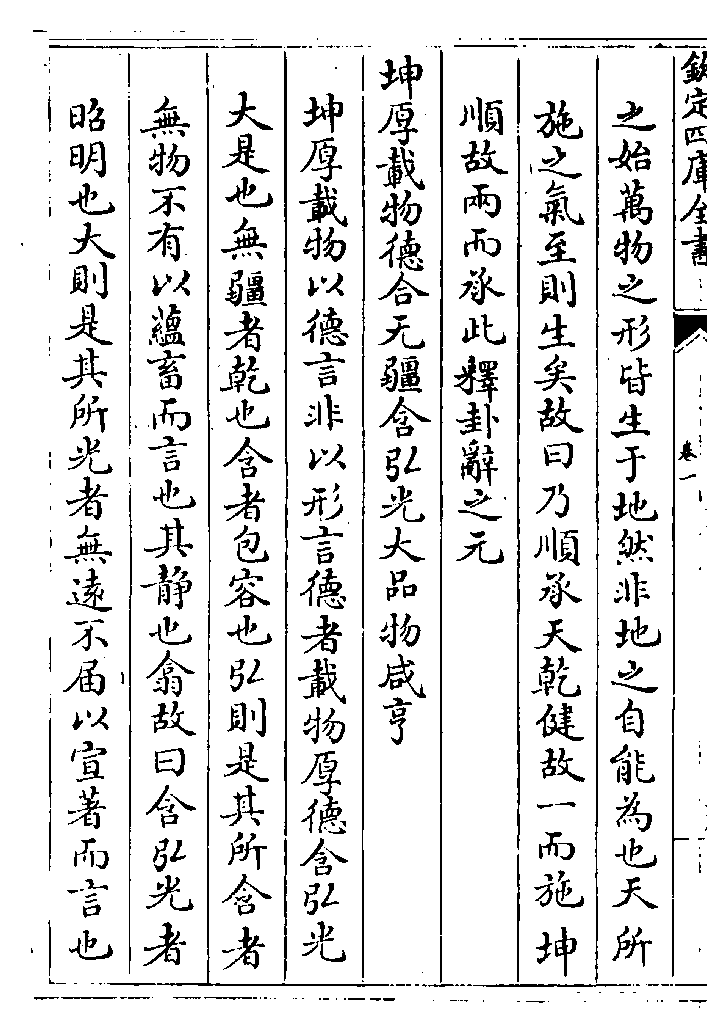 欽定四庫全書
卷一
之始萬物之形皆生于地然非地之自能為也天所
施之氣至則生矣故曰乃順承天乾健故一而施坤
順故兩而承此釋卦辭之元
坤厚載物德合无疆含弘光大品物咸亨
坤厚載物以德言非以形言德者載物厚德含弘光
大是也無疆者乾也含者包容也弘則是其所含者
無物不有以蘊畜而言也其静也翕故曰含弘光者
昭明也大則是其所光者無遠不届以宣著而言也